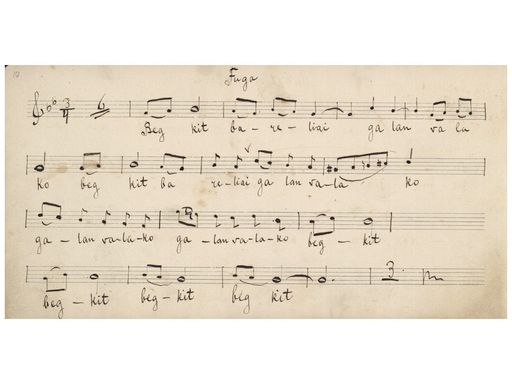 10
Fuga
3
4
6
Beg kit ba - re - liai ga lan va la
ko beg kit ba re - liai ga lan va - la ko
ga - lan va - la - ko ga - lan va - la - ko beg - kit
3
beg - kit beg - kit beg kit